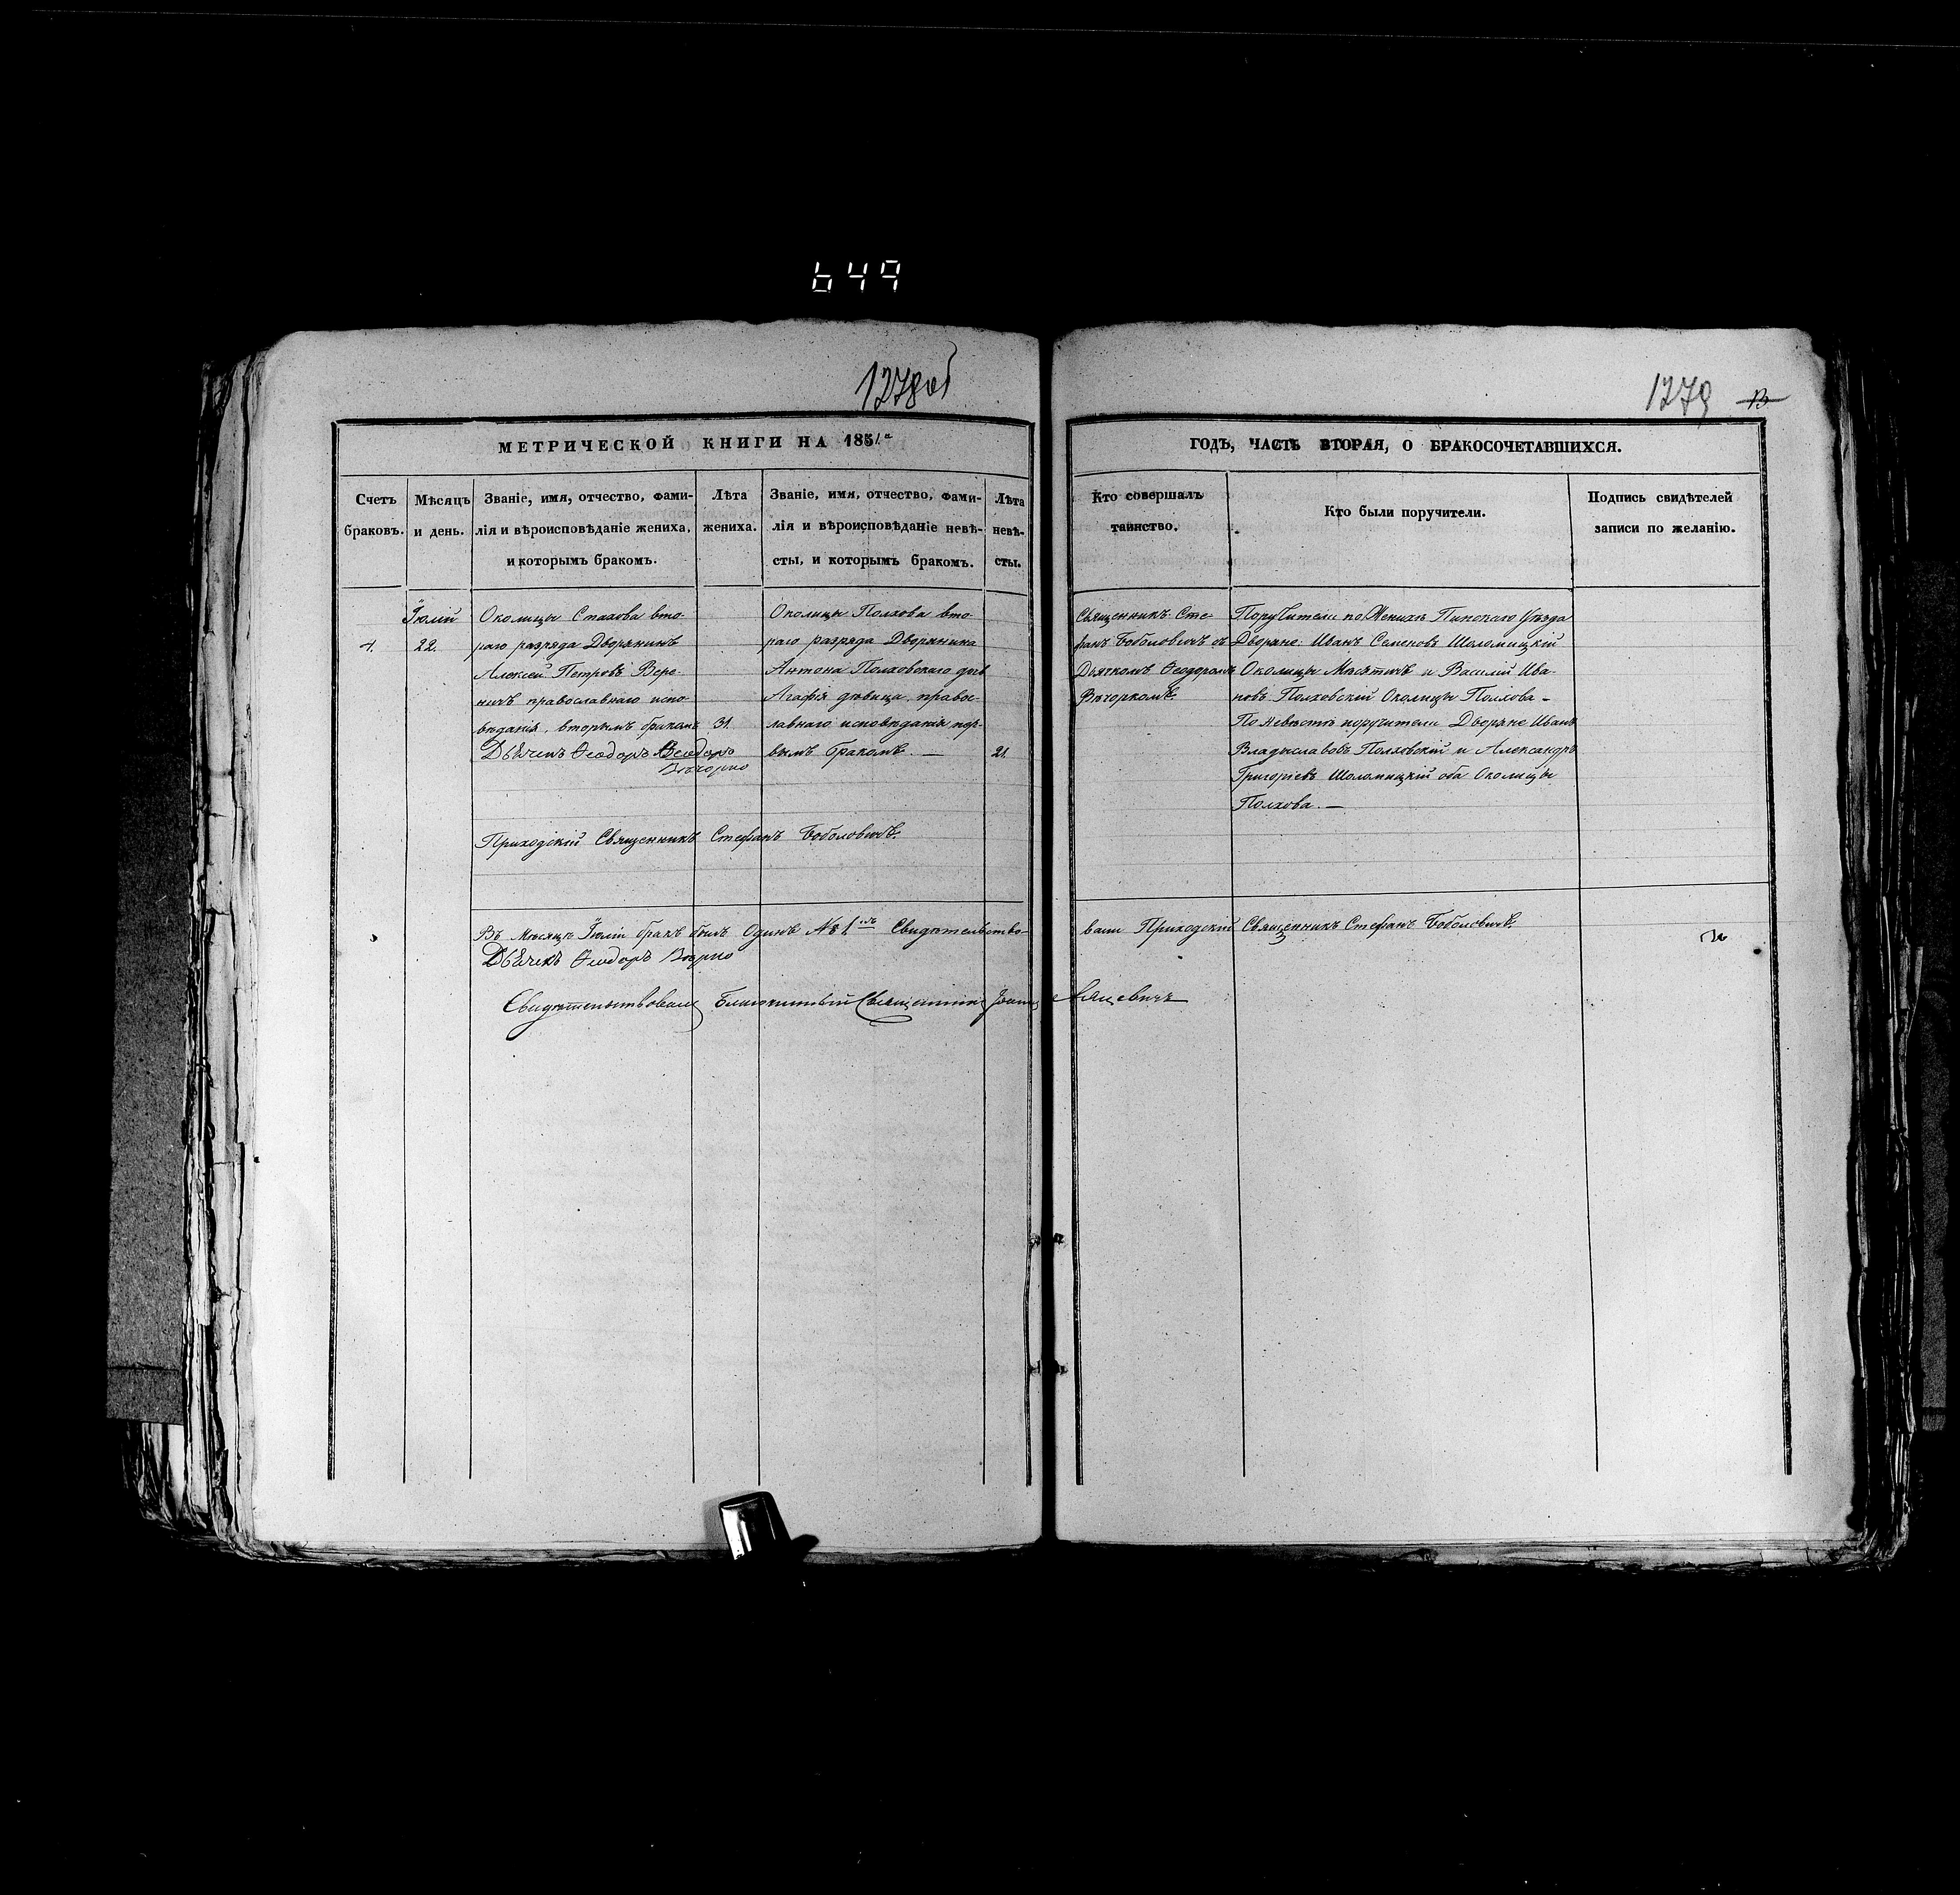 649
1278об
1279 13
МЕТРИЧЕСКОЙ КНИГИ НА 1851.й
ГОДЪ, ЧАСТЬ ВТОРАЯ, О БРАКОСОЧЕТАВШИХСЯ.
Счетъ
браковъ.
Мѣсяцъ
и день.
Званіе, имя, отчество, фами-
лія и вѣроисповѣданіе жениха,
и которымъ бракомъ.
Лѣта
жениха.
Званіе, имя, отчество, фами-
лія и вѣроисповѣданіе невѣ-
сты, и которымъ бракомъ.
Лѣта
невѣ-
сты.
Кто совершалъ
таинство.
Кто были поручители.
Подпись свидѣтелей
записи по желанію.
1.
Іюлій
22.
Околицы Стахова вто-
раго разряда Дворянинъ
Алексѣй Петровъ Вере-
ничъ православнаго испо-
вѣданія, вторымъ бракомъ
Дьячекъ Ѳеодоръ
Вечорко
31.
Околицы Полхова вто-
раго разряда Дворянина
Антона Полховскаго дочь
Агафія дѣвица правос-
лавнаго исповѣданія пер-
вымъ бракомъ. —
21.
Священникъ Сте-
фанъ Боболовичъ съ
Дьячкомъ Ѳеодоромъ
Вечоркомъ.
Поручители по Женихѣ Пинскаго Уѣзда
Дворяне Иванъ Семеновъ Шоломицкій
Околицы Мѣстичъ и Василій Ива-
новъ Полховскій Околицы Полхова –
По невѣстѣ поручители Дворяне Иванъ
Владиславовъ Полховскій и Александръ
Григоріевъ Шоломицкій оба Околицы
Полхова. —
Приходскій Священникъ Стефанъ Боболовичъ.
Въ Мѣсяцѣ Іюлій бракъ былъ Одинъ № 1 Свидѣтельство-
вали Приходскій Священникъ Стефанъ Боболовичъ.
Дьячекъ Ѳеодоръ
Свидѣтельствовалъ Священникъ